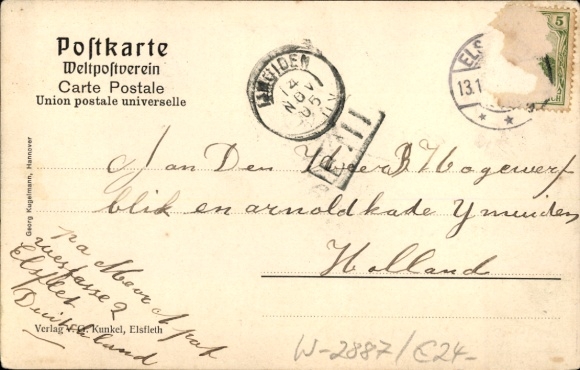 Postkarte
Weltpostverein
Carte Postale
Union postale universelle
Georg Kugelmann, Hannover
IJMUIDEN
14
NOV
05
ELS
13.1
5
Aan Den Heer B Hogewerf
blik en arnoldkade Ymuiden
Holland
pa
Elsfleth
Duitschland
Verlag V. G. Kunkel, Elsfleth
W-2887/€24-